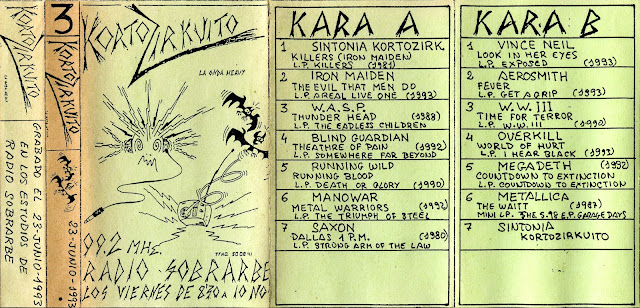 KORTOZIRKUITO
LA ONDA HEAVY
GRABADO EL 23-JUNIO-1993
EN LOS ESTUDIOS DE
RADIO SOBRARBE
3
KORTOZIRKUITO
23-JUNIO-1993
KORTOZIRKUITO
LA ONDA HEAVY
99.2 MHZ
RADIO SOBRARBE
LOS VIERNES DE 8'30 A 10 NO
KARA A
1 SINTONIA KORTOZIRK
KILLERS (IRON MAIDEN)
L.P. KILLERS (1981)
2 IRON MAIDEN
THE EVIL THAT MEN DO
L.P. A REAL LIVE ONE (1993)
3 W.A.S.P.
THUNDER HEAD (1988)
L.P. THE EADLESS CHILDREN
4 BLIND GUARDIAN
THEATHRE OF PAIN (1992)
L.P. SOMEWHERE FAR BEYOND
5 RUNNING WILD
RUNNING BLOOD
L.P. DEATH OR GLORY (1990)
6 MANOWAR
METAL WARRIORS (1992)
L.P. THE TRIUMPH OF STEEL
7 SAXON
DALLAS 1 P.M. (1980)
L.P. STRONG ARM OF THE LAW
KARA B
1 VINCE NEIL
LOOK IN HER EYES
L.P. EXPOSED (1993)
2 AEROSMITH
FEVER
L.P. GET A GRIP (1993)
3 W.W. III
TIME FOR TERROR
L.P. W.W. III (1990)
4 OVERKILL
WORLD OF HURT
L.P. I HEAR BLACK (1993)
5 MEGADETH (1992)
COUNTDOWN TO EXTINCTION
L.P. COUNTDOWN TO EXTINCTION
6 METALLICA
THE WAITT (1987)
MINI L.P. THE 5.98 E.P. GARAGE DAYS
7 SINTONIA
KORTOZIRKUITO